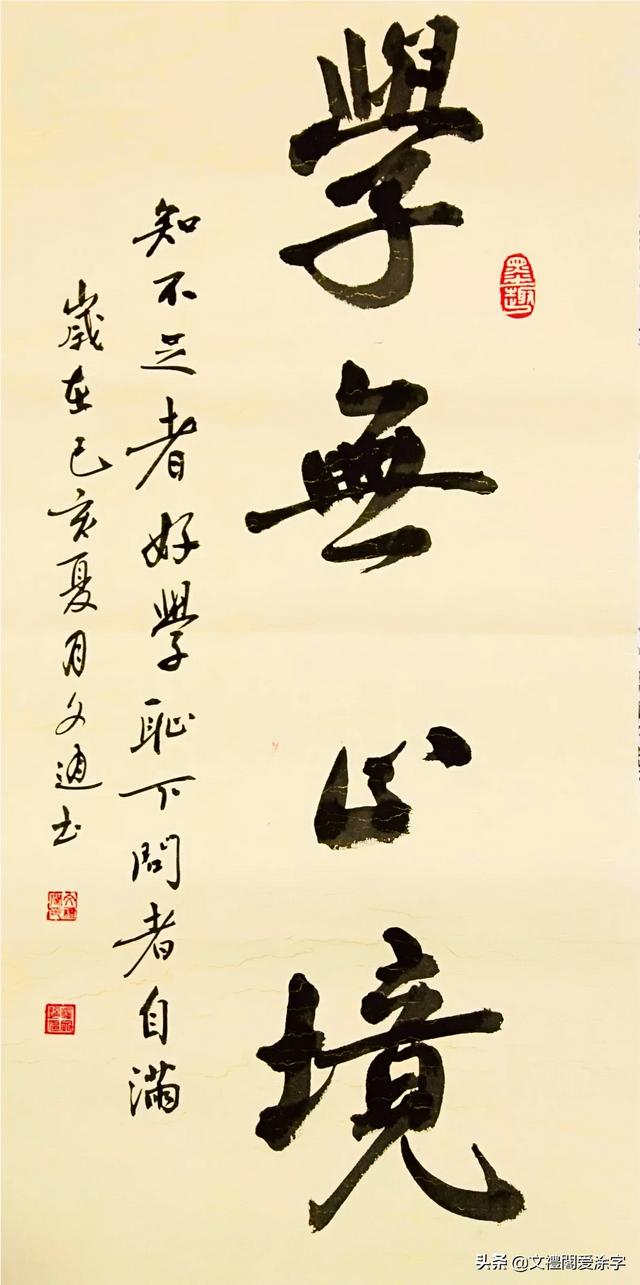 學無止境
墨趣
知不足者好學恥下問者自滿
歲在己亥夏月文通书
头条 @文禮閣爱涂字